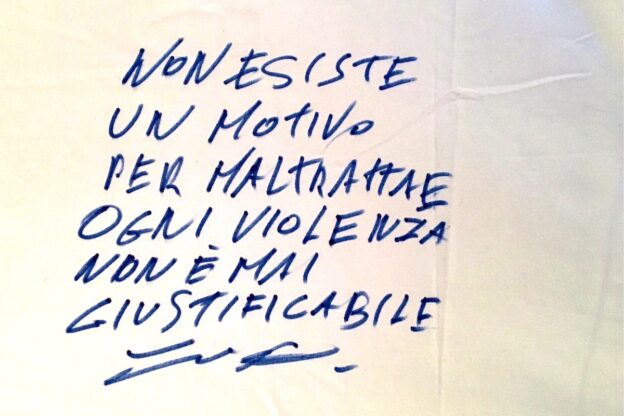 NON ESISTE
UN MOTIVO
PER MALTRATTAE
OGNI VIOLENZA
NON È MAI
GIUSTIFICABILE